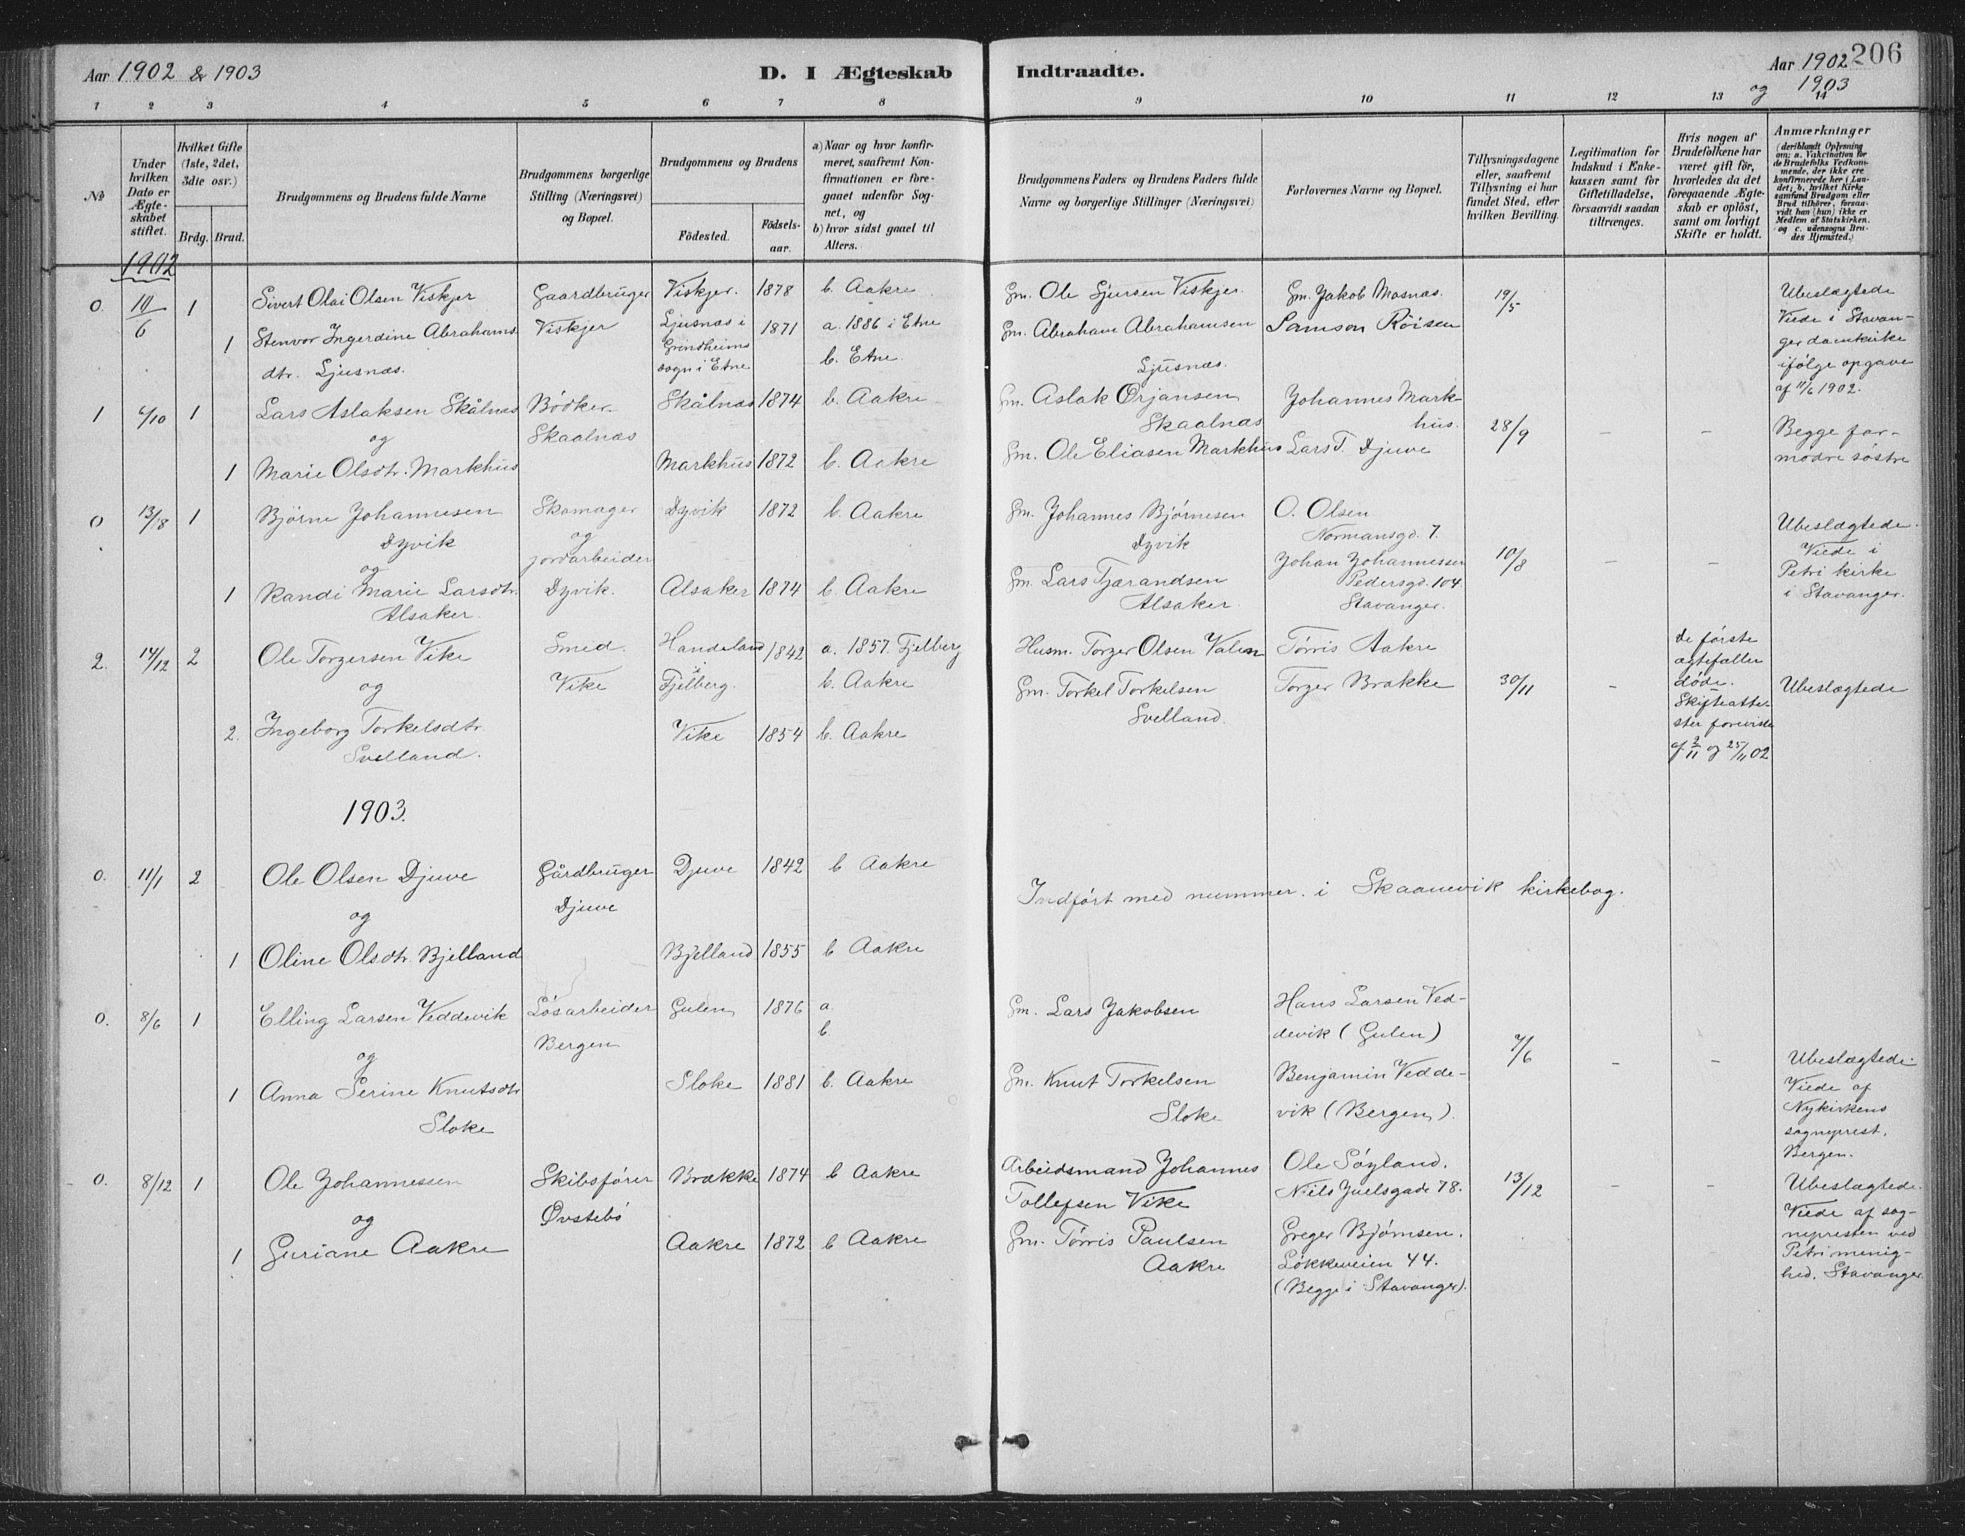 Aar 1902 & 1903
D. I Ægteskab
Indtraadte.
Aar 1902
og 1903
206
1 2 3 4 5 6 7 8
9 10 11 12 13 14
№
Under hvilken Dato er Ægteskabet stiftet.
Hvilket Gifte (1ste, 2det, 3die osv.)
Brdg. Brud.
Brudgommens og Brudens fulde Navne
Brudgommens borgerlige Stilling (Næringsvei) og Bopæl.
Brudgommens og Brudens
Födested.
Födselsaar.
a) Naar og hvor konfirmeret, saafremt Konfirmationen er foregaaet udenfor Sognet, og
b) hvor sidst gaaet til Alters.
Brudgommens Faders og Brudens Faders fulde Navne og borgerlige Stillinger (Næringsvei)
Forlovernes Navne og Bopæl.
Tillysningsdagene eller, saafremt Tillysning ei har fundet Sted, efter hvilken Bevilling.
Legitimation for Indskud i Enkekassen samt for Giftetilladelse, forsaavidt saadan tiltrænges.
Hvis nogen af Brudefolkene har været gift för, hvorledes da det foregaaende Ægteskab er oplöst, samt om lovligt Skifte er holdt.
Anmærkninger
(deriblandt Oplysning om: a. Vakcination for de Brudefolks Vedkommende, der ikke ere konfirmerede her i Landet; b. hvilket Kirkesamfund Brudgom eller Brud tilhörer, forsaavidt han (hun) ikke er Medlem af Statskirken, og c. udensogns Brudes Hjemsted.)
1902
0. 10/6 1 Sivert Olai Olsen Viskjer Gaardbruger Viskjer. 1878 b. Aakre Gm. Ole Sjursen Viskjer. Gm. Jakob Mosnæs. 19/5 Ubeslægtede
1 Stenvor Ingerdine Abrahams Viskjer Ljusnæs i 1871 a. 1886 i Etne Gm. Abraham Abrahamsen Samson Röisen Viede i Stavan-
dtr. Ljusnæs. Grindheims b. Etne. Ljusnæs. ger domkirke
sogn i Etne ifølge opgave
af 11/6 1902.
1 6/10 1 Lars Aslaksen Skålnæs Bödker Skålnæs 1874 b. Aakre Gm. Aslak Ørjansen Johannes Mark-
og Skaalnæs Skaalnæs hus. 28/9 – – Begge for-
1 Marie Olsdtr. Markhus Markhus 1872 b. Aakre Gm. Ole Eliasen Markhus Lars T. Djuve mödre söstre
0 13/8 1 Bjørne Johannesen Skomager Dyvik 1872 b. Aakre Gm. Johannes Bjørnesen O. Olsen Ubeslægtede.
Dyvik og Dyvik Normansgd. 7. Viede i
og jordarbeider Johan Johannessen 10/8 – – Petri kirke
1 Randi Marie Larsdtr. Dyvik. Alsaker 1874 b. Aakre Gm. Lars Tjærandsen Pedersgd. 104 i Stavanger.
Alsaker. Alsaker. Stavanger.
2. 14/12 2 Ole Torgersen Vike Smed. Handeland 1842 a. 1857. Fjelberg Husm. Torger Olsen Valen Törris Aakre de første
og Vike Fjelberg. b. Aakre Gm. Torkel Torkelsen Torger Brække 30/11 – ægtefæller døde. Ubeslægtede
2. Ingeborg Torkelsdtr. Vike 1854 b. Aakre Svelland. Skifteatte-
Svelland. ster foreviste
af 2/11 og 25/11 02
1903.
0. 11/1 2 Ole Olsen Djuve Gårdbruger Djuve 1842 b Aakre
og Djuve Indført med nummer i Skaanevik kirkebog.
1 Oline Olsdtr. Bjelland Bjelland 1855 b Aakre
0. 8/6 1 Elling Larsen Veddevik Løsarbeider Gulen 1876 a. Gm. Lars Jakobsen Hans Larsen Ved-
og Bergen b. devik (Gulen) 7/6 – – Ubeslægtede.
1 Anna Serine Knutsdtr Sloke 1881 b. Aakre Gm. Knut Torkelsen Benjamin Vedde- Viede af
Sloke Sloke vik (Bergen). Nykirkens
sogneprest,
Bergen.
0. 8/12 1 Ole Johannessen Skibsfører Brække 1874 b Aakre Arbeidsmand Johannes Ole Søyland. 13/12 – – Ubeslægtede.
og Øvstebö Tollefsen Vike Niels Juelsgade 78. Viede af sog-
1 Guriane Aakre Aakre 1872 b Aakre Gm. Törris Paulsen Greger Bjørnsen. nepresten ved
Aakre Løkkeveien 44. Petri menig-
(Begge i Stavanger). hed, Stavanger.